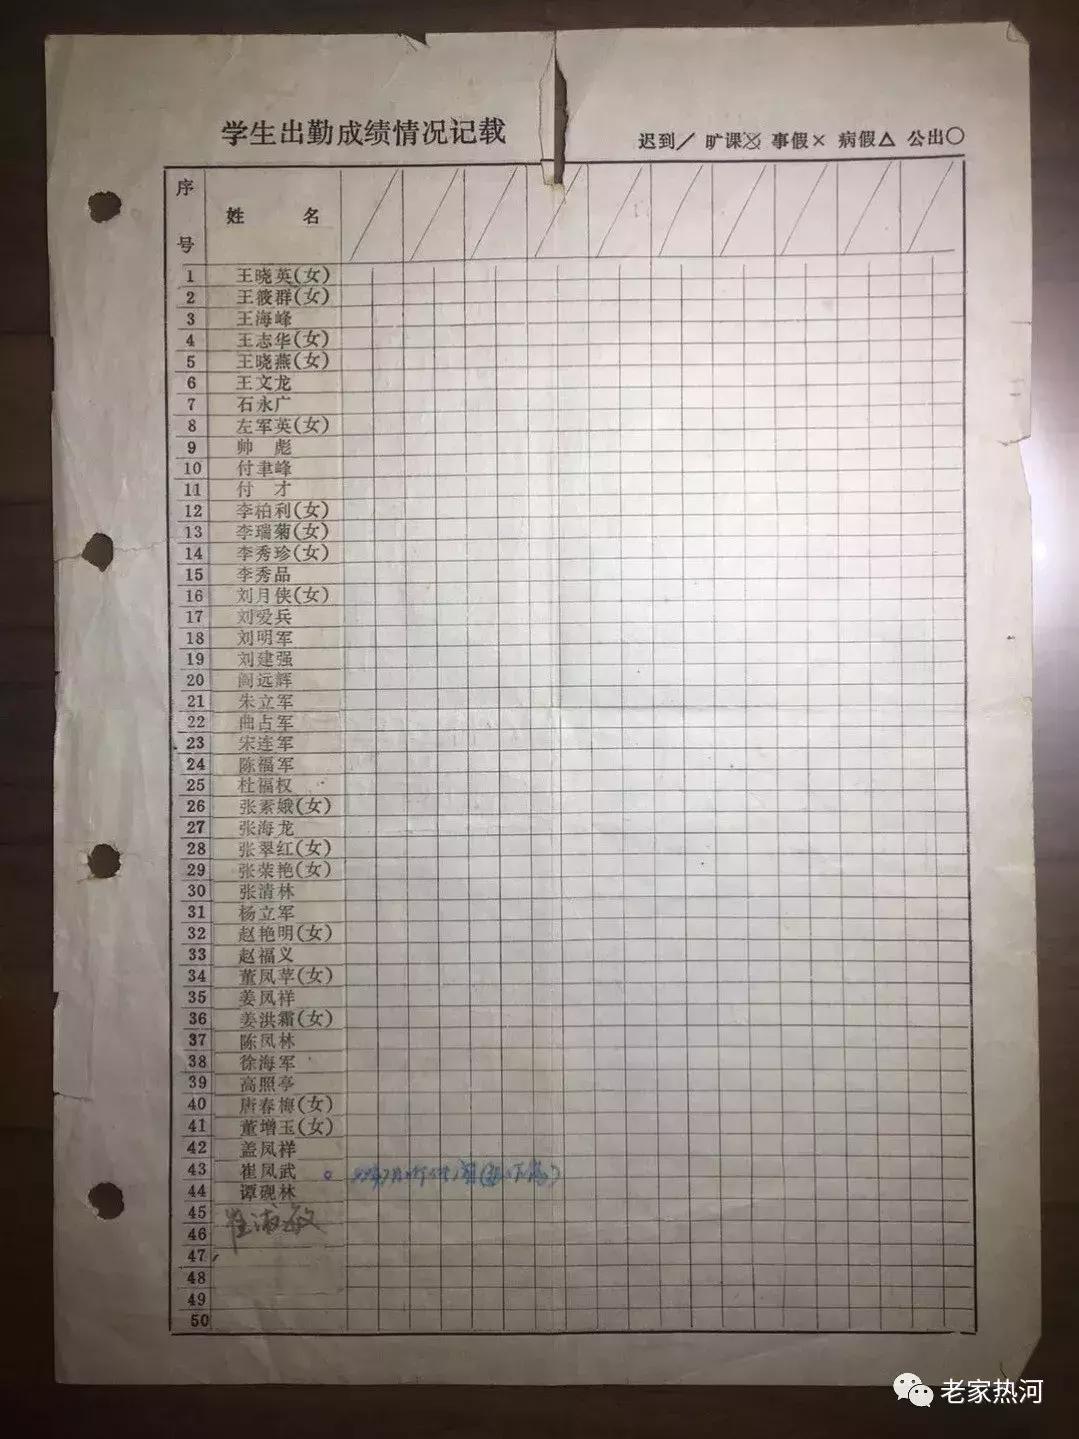 学生出勤成绩情况记载
迟到／ 旷课⊗ 事假× 病假△ 公出○
序号 姓 名
1 王晓英(女)
2 王筱群(女)
3 王海峰
4 王志华(女)
5 王晓燕(女)
6 王文龙
7 石永广
8 左军英(女)
9 帅 彪
10 付聿峰
11 付 才
12 李柏利(女)
13 李瑞菊(女)
14 李秀珍(女)
15 李秀品
16 刘月侠(女)
17 刘爱兵
18 刘明军
19 刘建强
20 阎远辉
21 朱立军
22 曲占军
23 宋连军
24 陈福军
25 杜福权
26 张素娥(女)
27 张海龙
28 张翠红(女)
29 张荣艳(女)
30 张清林
31 杨立军
32 赵艳明(女)
33 赵福义
34 董凤苹(女)
35 姜凤祥
36 姜洪霜(女)
37 陈凤林
38 徐海军
39 高照亭
40 唐春梅(女)
41 董增玉(女)
42 盖凤祥
43 崔凤武
44 谭砚林
45 崔淑敏
46
47
48
49
50
老家热河